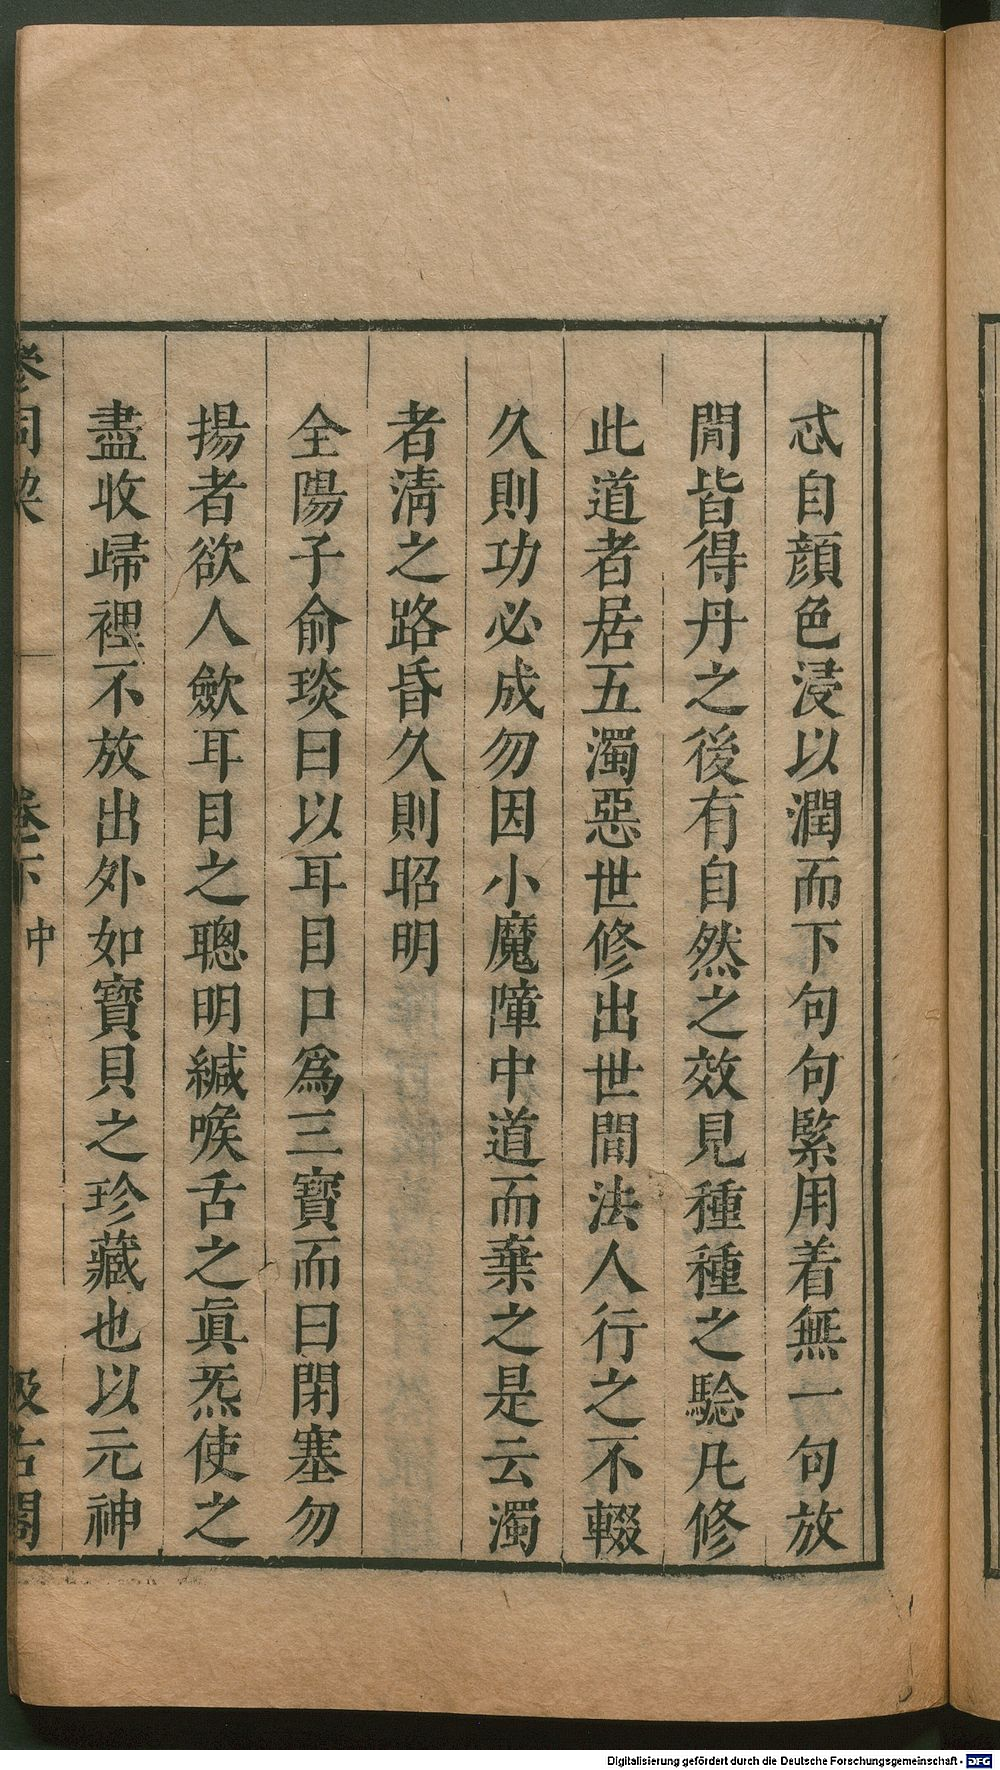 忒自顔色浸以潤而下句句緊用着無一句放
閒皆得丹之後有自然之效見種種之驗凡修
此道者居五濁惡世修出世間法人行之不輟
久則功必成勿因小魔障中道而棄之是云濁
者淸之路昏久則昭明
全陽子俞琰曰以耳目口爲三寶而曰閉塞勿
揚者欲人歛耳目之聰明緘喉舌之眞炁使之
盡收歸裡不放出外如寶貝之珍藏也以元神
參同契
卷下中
汲古閣
Digitalisierung gefördert durch die Deutsche Forschungsgemeinschaft - DFG